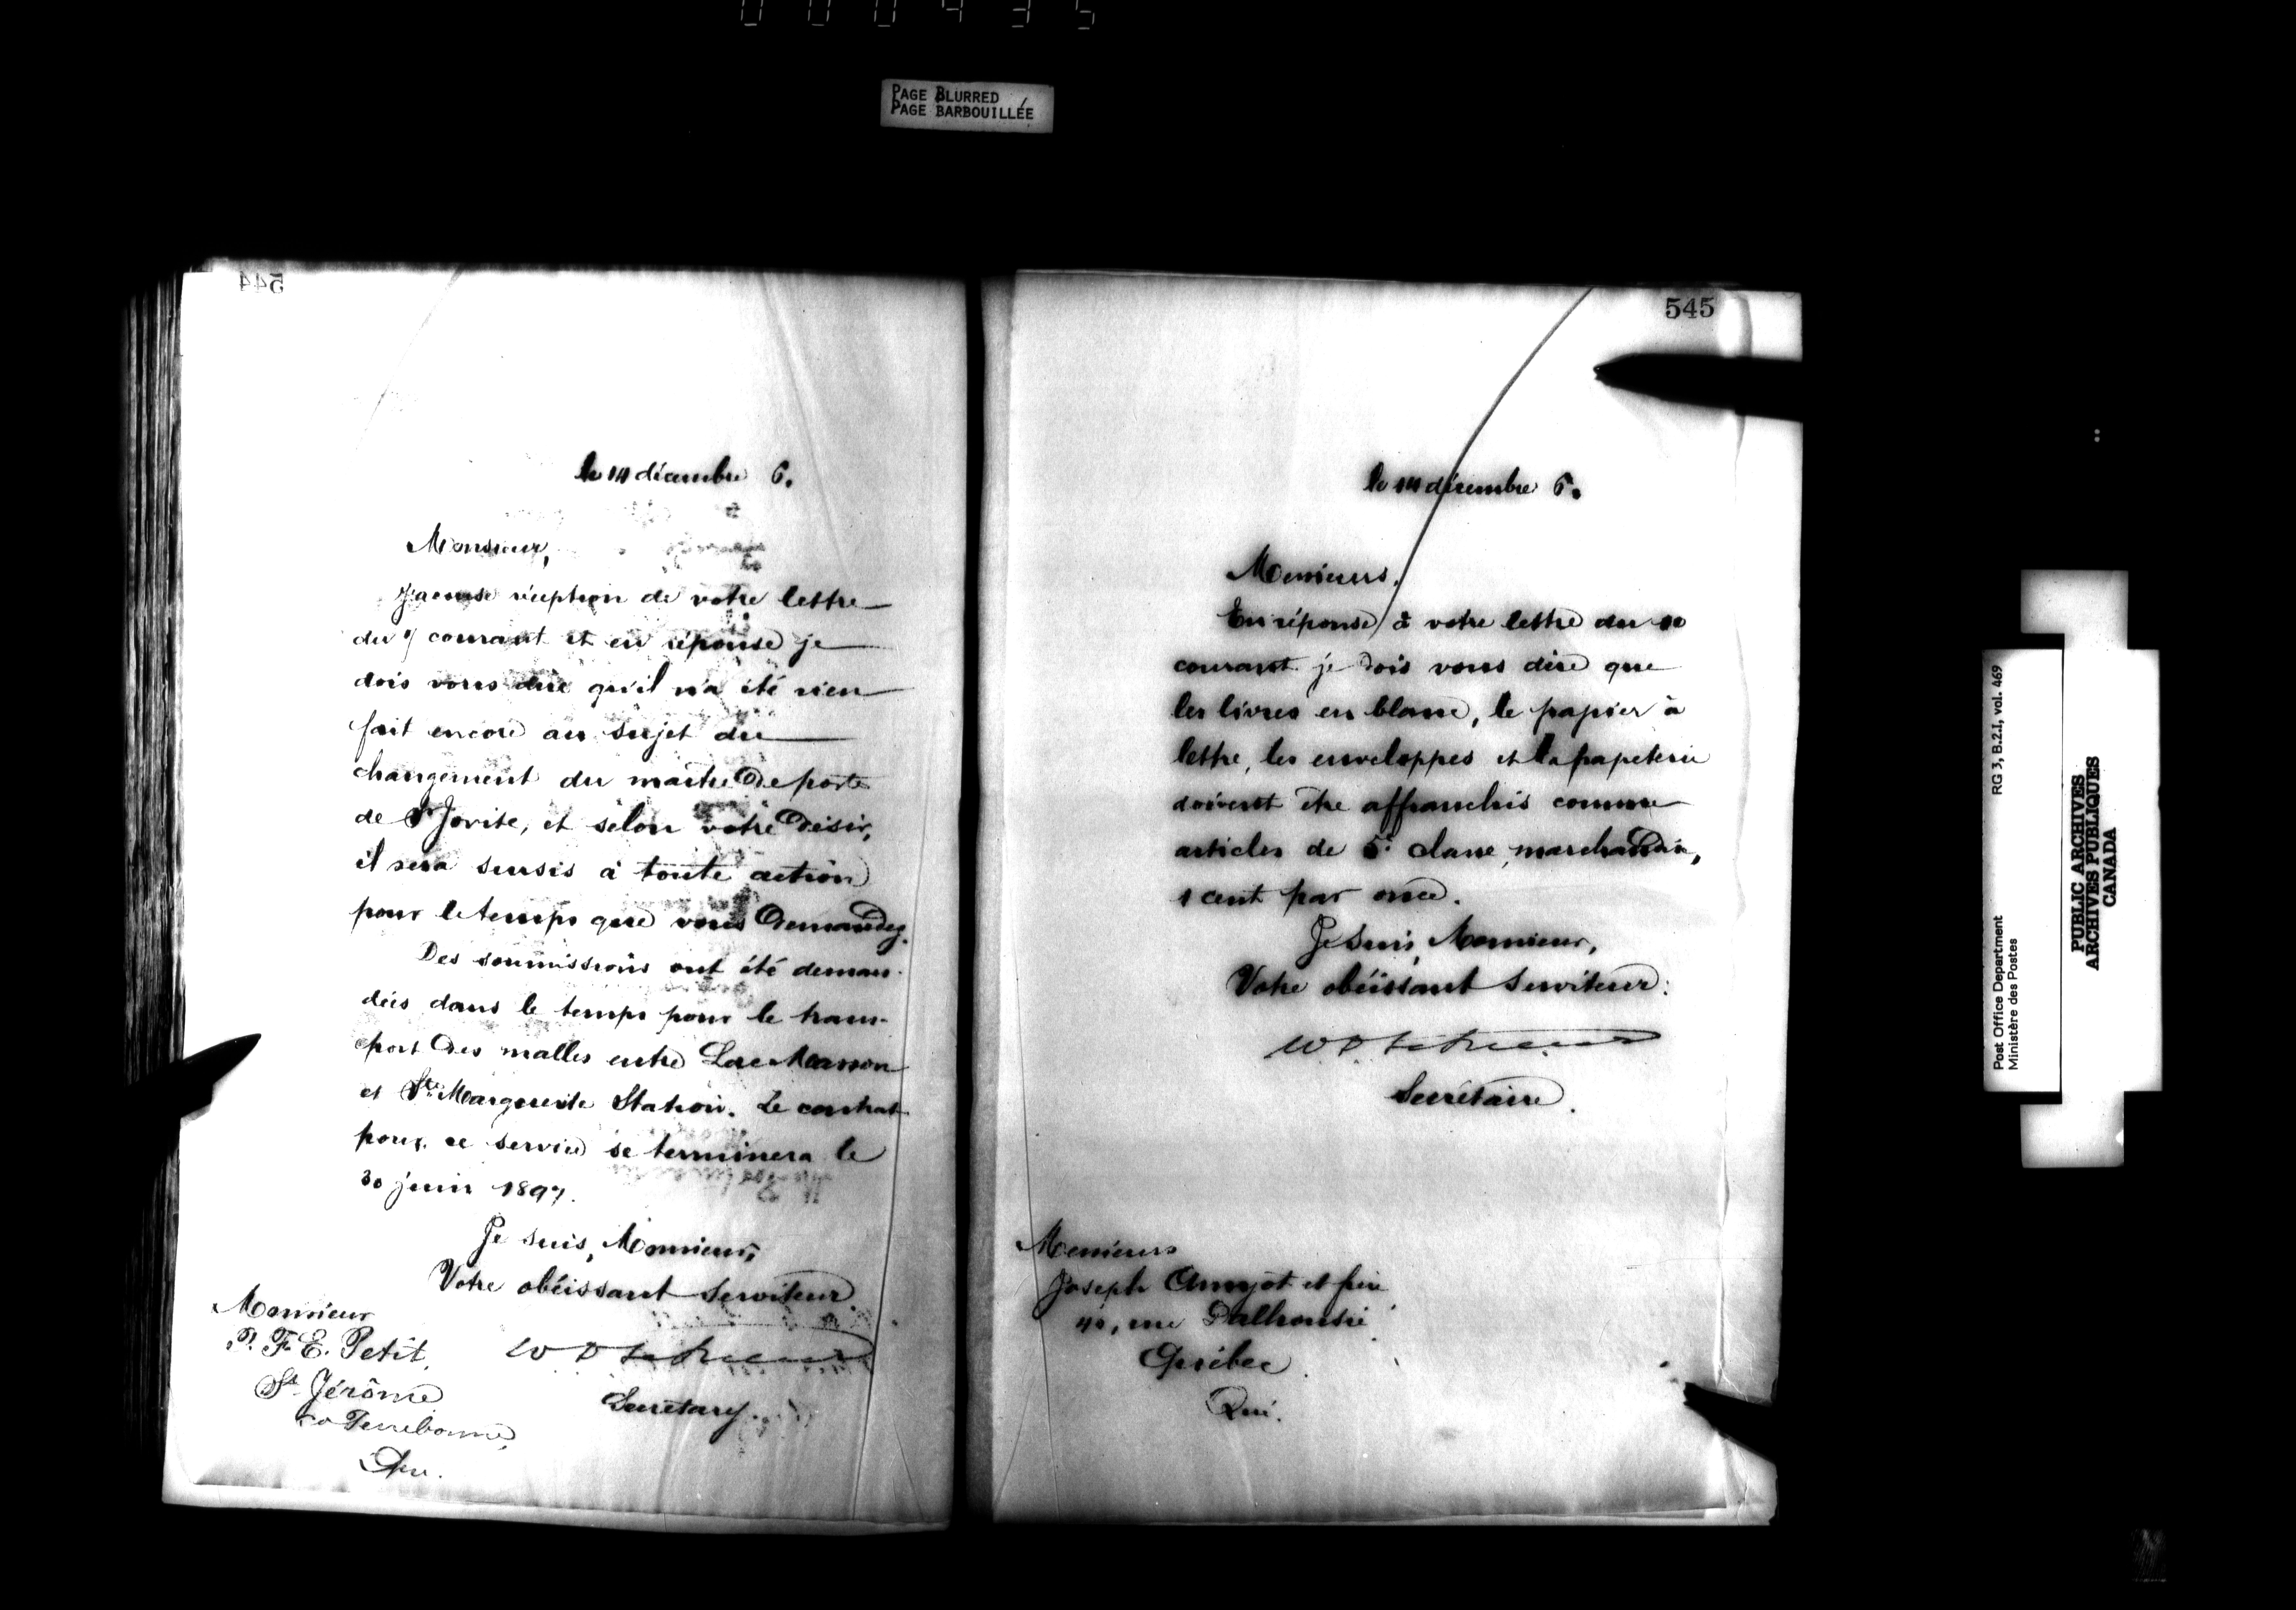 000435
PAGE BLURRED
PAGE BARBOUILLÉE
544
le 14 décembre 6.
Monsieur,
J'accuse réception de votre lettre
du 9 courant et en réponse je
dois vous dire qu'il n'a été rien
fait encore au sujet du
changement du maitre de poste
de St Jovite, et selon votre désir,
il sera sursis à toute action
pour le temps que vous demandez.
Des soumissions ont été deman-
dées dans le temps pour le trans-
port des malles entre Lac Masson
et Ste Marguerite Station. Le contrat
pour ce service se terminera le
30 juin 1897.
Je suis, Monsieur,
Votre obéissant Serviteur
Monsieur
F. E. Petit,
St Jérôme
co Terrebonne,
Que.
Secretary.
545
le 14 décembre 6.
Messieurs,
En réponse à votre lettre du 10
courant je dois vous dire que
les livres en blanc, le papier à
lettre, les enveloppes et la papeterie
doivent être affranchis comme
articles de 5e classe, marchandise,
1 cent par once.
Je suis, Monsieur,
Votre obéissant Serviteur:
Secrétaire.
Messieurs
Joseph Amyot et frère
40, rue Dalhousie
Québec
Qué.
Post Office Department
Ministère des Postes
RG 3, B.2.I, vol. 469
PUBLIC ARCHIVES
ARCHIVES PUBLIQUES
CANADA